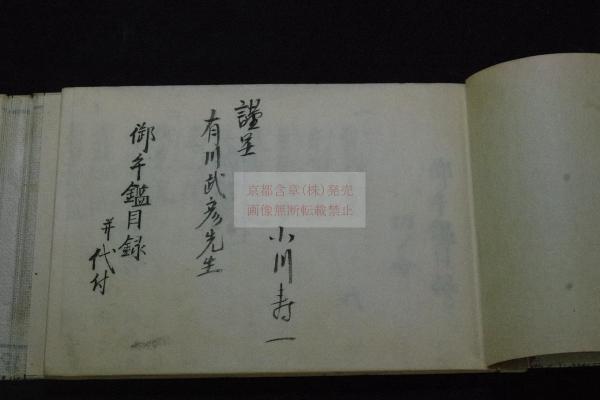 謹呈
小川寿一
有川武彦先生
御手鑑目録
并代付
京都含章(株)発売
画像無断転載禁止